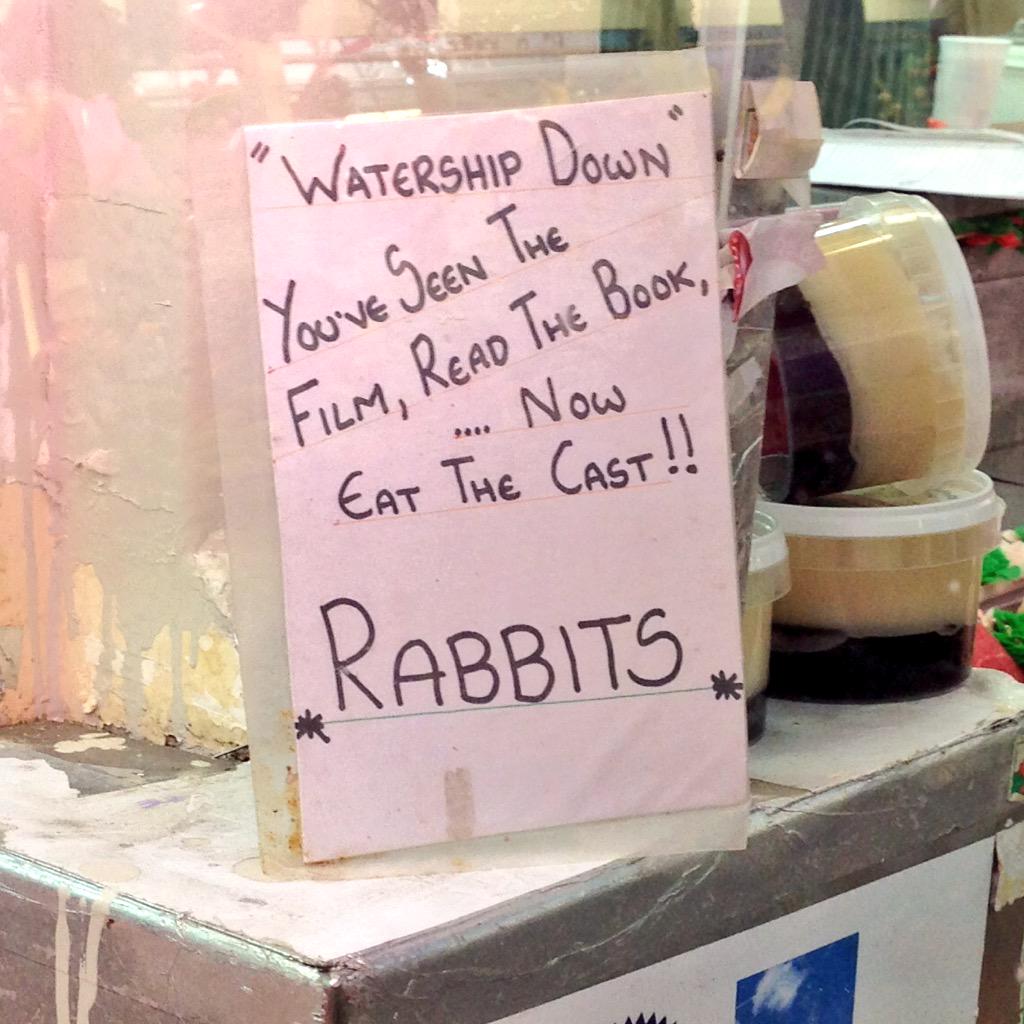 "WATERSHIP DOWN"
YOU'VE SEEN THE
FILM, READ THE BOOK,
.... NOW
EAT THE CAST!!
RABBITS